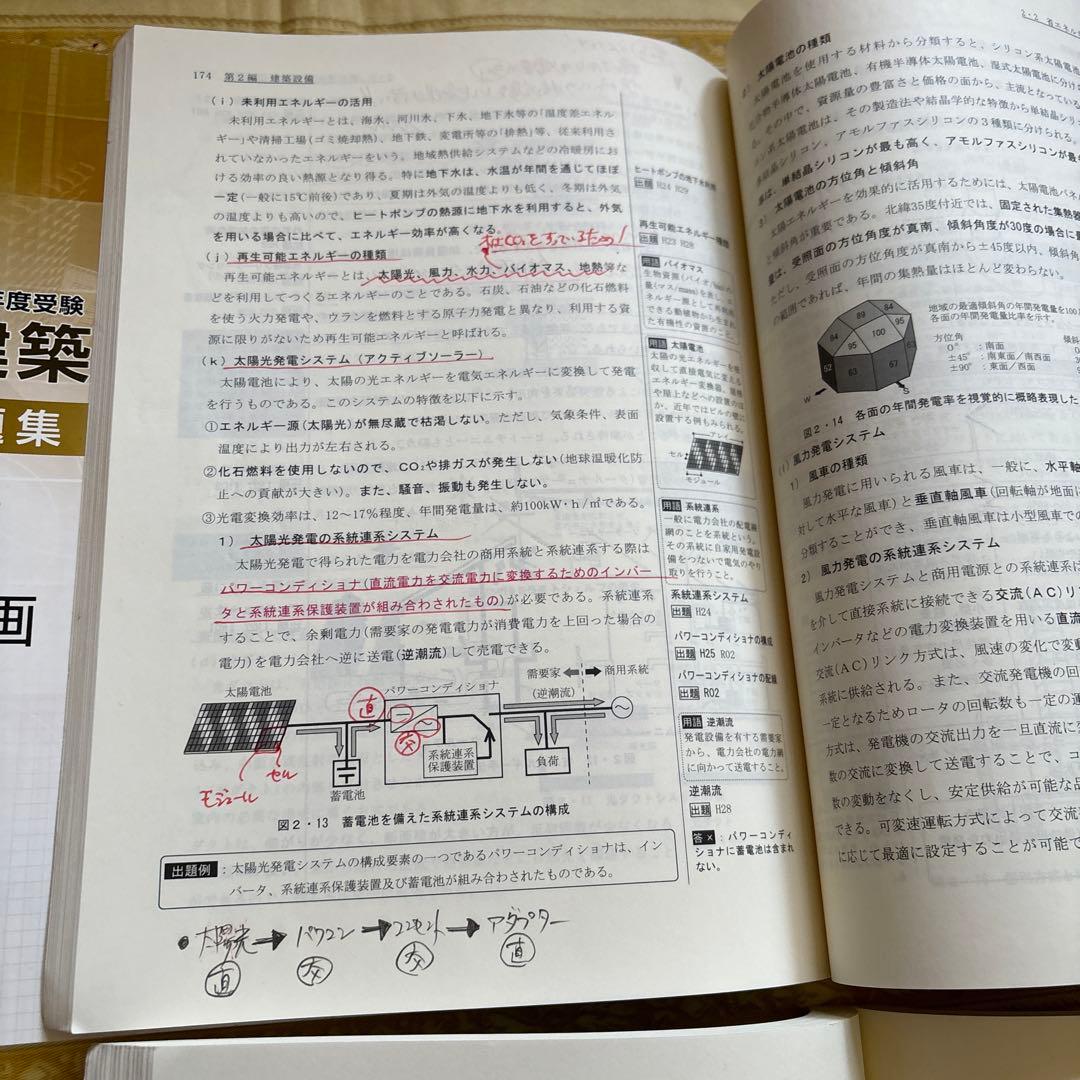 年度受験
建築
題集
画
174 第2編 建築設備
(i) 未利用エネルギーの活用
未利用エネルギーとは、海水、河川水、下水、地下水等の「温度差エネル
ギー」や清掃工場(ゴミ焼却熱)、地下鉄、変電所等の「排熱」等、従来利用さ
れていなかったエネルギーをいう。地域熱供給システムなどの冷暖房にお
ける効率の良い熱源となり得る。特に地下水は、水温が年間を通じてほぼ
一定(一般に15℃前後)であり、夏期は外気の温度よりも低く、冬期は外気
の温度よりも高いので、ヒートポンプの熱源に地下水を利用すると、外気
を用いる場合に比べて、エネルギー効率が高くなる。
(j) 再生可能エネルギーの種類
再生可能エネルギーとは、太陽光、風力、水力、バイオマス、地熱等な
どを利用してつくるエネルギーのことである。石炭、石油などの化石燃料
を使う火力発電や、ウランを燃料とする原子力発電と異なり、利用する資
源に限りがないため再生可能エネルギーと呼ばれる。
(k) 太陽光発電システム(アクティブソーラー)
太陽電池により、太陽の光エネルギーを電気エネルギーに変換して発電
を行うものである。このシステムの特徴を以下に示す。
①エネルギー源(太陽光)が無尽蔵で枯渇しない。ただし、気象条件、表面
温度により出力が左右される。
②化石燃料を使用しないので、CO₂や排ガスが発生しない(地球温暖化防
止への貢献が大きい)。また、騒音、振動も発生しない。
③光電変換効率は、12～17%程度、年間発電量は、約100kW・h/㎡である。
1) 太陽光発電の系統連系システム
太陽光発電で得られた電力を電力会社の商用系統と系統連系する際は
パワーコンディショナ(直流電力を交流電力に変換するためのインバー
タと系統連系保護装置が組み合わされたもの)が必要である。系統連系
することで、余剰電力(需要家の発電電力が消費電力を上回った場合の
電力)を電力会社へ逆に送電(逆潮流)して売電できる。
需要家 商用系統
太陽電池 直 パワーコンディショナ (逆潮流)
交
系統連系
保護装置
負荷
蓄電池
セル
モジュール
図2・13 蓄電池を備えた系統連系システムの構成
出題例:太陽光発電システムの構成要素の一つであるパワーコンディショナは、イン
バータ、系統連系保護装置及び蓄電池が組み合わされたものである。
●太陽光→パワコン→コンセント→アダプター
直 交 交 直
ヒートポンプの地下水利用
出題 H24 H29
再生可能エネルギー種類
出題 H23 H28
用語 バイオマス
用語 太陽電池
太陽の光エネルギーを吸
収して直接電気に変える
エネルギー変換器。屋根
や屋上などへの設置のほ
か、近年ではビルの壁に
設置する例もみられる。
アレイ
セル
モジュール
用語 系統連系
一般に電力会社の配電線
網のことを系統という。
その系統に自家用発電設
備をつないで電気のやり
取りを行うこと。
系統連系システム
出題 H24
パワーコンディショナの構成
出題 H25 R02
パワーコンディショナの配線
出題 R02
用語 逆潮流
発電設備を有する需要家
から、電力会社の電力網
に向かって送電すること。
逆潮流
出題 H28
答×:パワーコンディ
ショナに蓄電池は含まれ
ない。
太陽電池の種類
太陽電池を使用する材料から分類すると、シリコン系太陽電池
化合物半導体太陽電池、有機半導体太陽電池、湿式太陽電池に分け
その中で、資源量の豊富さと価格の面から、主流となってい
コン系太陽電池は、その製造法や結晶学的な特徴から単結晶シ
多結晶シリコン、アモルファスシリコンの3種類に分けられる。
は、単結晶シリコンが最も高く、アモルファスシリコンが最
太陽電池の方位角と傾斜角
太陽エネルギーを効果的に活用するためには、太陽電池パネ
と傾斜角が重要である。北緯35度付近では、固定された集熱器
量は、受照面の方位角が真南、傾斜角度が30度の場合に最
ただし、受照面の方位角度が真南から±45度以内、傾斜角
の範囲であれば、年間の集熱量はほとんど変わらない。
84 89
84 95 100 95
52 63 67 63
W S
地域の最適傾斜角の年間発電量を100
各面の年間発電量比率を示す。
方位角 傾斜
0° :南面
±45° :南東面/南西面
±90° :東面/西面
図2・14 各面の年間発電率を視覚的に概略表現した
(l) 風力発電システム
1) 風車の種類
風力発電に用いられる風車は、一般に、水平軸
対して水平な風車)と垂直軸風車(回転軸が地面に
分類することができ、垂直軸風車は小型風車での
2) 風力発電の系統連系システム
風力発電システムと商用電源との系統連系は
を介して直接系統に接続できる交流(AC)リ
インバータなどの電力変換装置を用いる直流
交流(AC)リンク方式は、風速の変化で変動
系統に供給される。また、交流発電機の回
一定となるためロータの回転数も一定の運
方式は、発電機の交流出力を一旦直流に変
数の交流に変換して送電することで、コ
数の変動をなくし、安定供給が可能な品
できる。可変速運転方式によって交流
に応じて最適に設定することが可能で